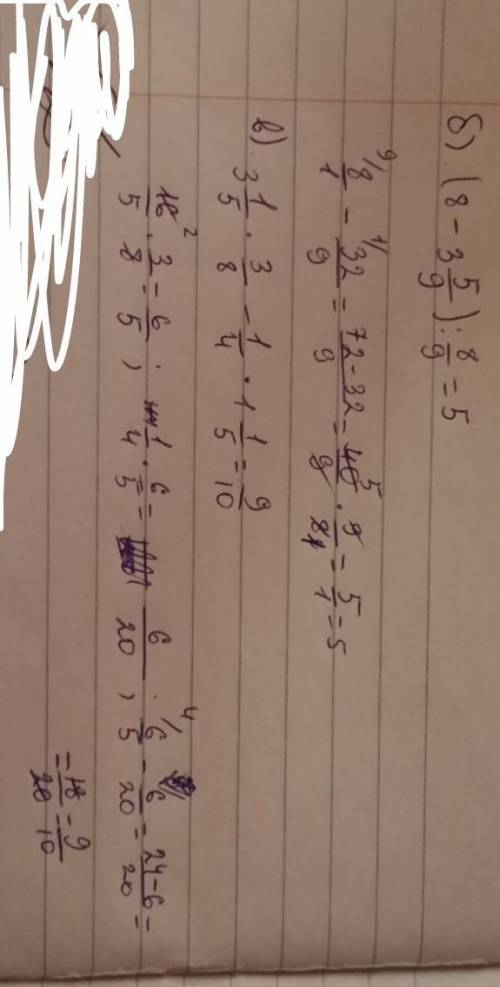 б). (8 - 3 5/9) : 8/9 = 5
9/ 8/1 - 1/ 32/9 = 72-32/9 = 40 5/9 · 9/8 1 = 5/1 = 5
в). 3 1/5 · 3/8 - 1/4 · 1 1/5 = 9/10
16 2/5 · 3/8 = 6/5 ; 1/4 · 6/5 = 6/20 ; 4/ 6/5 - 6/20 = 24-6/20 =
= 18/20 = 9/10